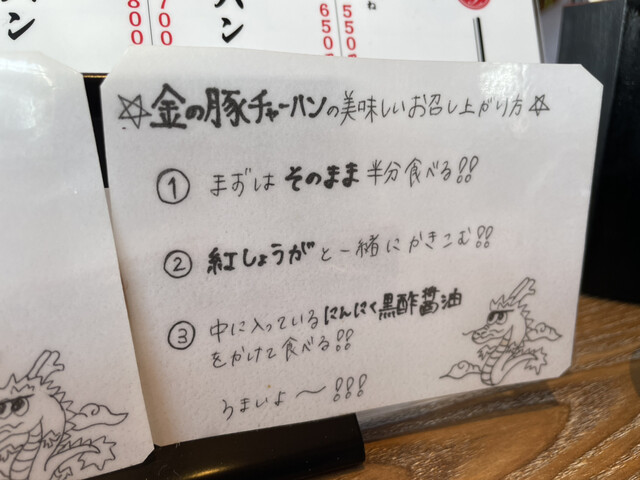 パン
800
700
パン
650
550
550
ね
☆金の豚チャーハンの美味しいお召し上がり方☆
① まずは そのまま 半分食べる!!
② 紅しょうがと一緒にかきこむ!!
③ 中に入っているにんにく黒酢醤油
をかけて食べる!!
うまいよ〜!!!